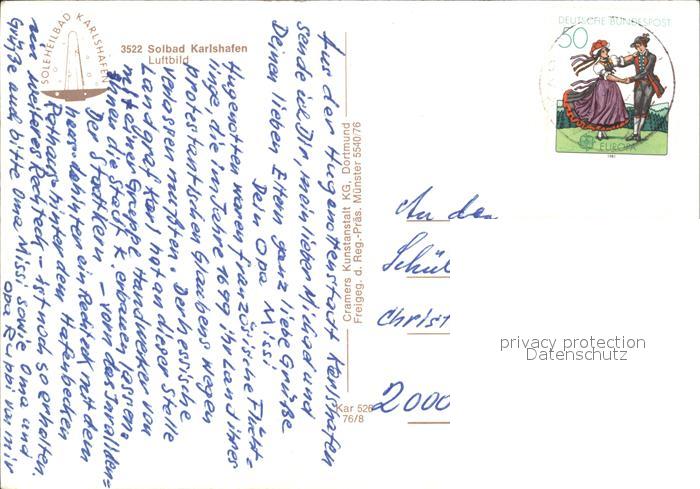 SOLEHEILBAD KARLSHAFEN
3522 Solbad Karlshafen
Luftbild
DEUTSCHE BUNDESPOST
50
EUROPA
1981
Aus der Hugenottenstadt Karlshafen
sende ich Dir, mein lieber Michael und
Deinen lieben Eltern ganz liebe Grüße
Dein Opa Missi
Hugenotten waren französische Flücht-
linge die im Jahre 1699 ihr Land ihres
protestantischen Glaubens wegen
verlassen mußten. Der hessische
Landgraf Karl hat an dieser Stelle
mit einer Gruppe Handwerker von
ihnen die Stadt K. erbauen lassen.
Der Stadtkern - vorn das Invaliden=
haus dahinter ein Rechteck mit dem
Rathaus hinter dem Hafenbecken
ein weiteres Rechteck - ist noch so erhalten.
Grüße auch bitte Oma Missi sowie Oma und
Opa Ruppi von mir
Cramers Kunstanstalt KG, Dortmund
Freigeg. d. Reg.-Präs. Münster 5540/76
Kar 526
76/8
An den
Schül
Christ
2000
privacy protection
Datenschutz